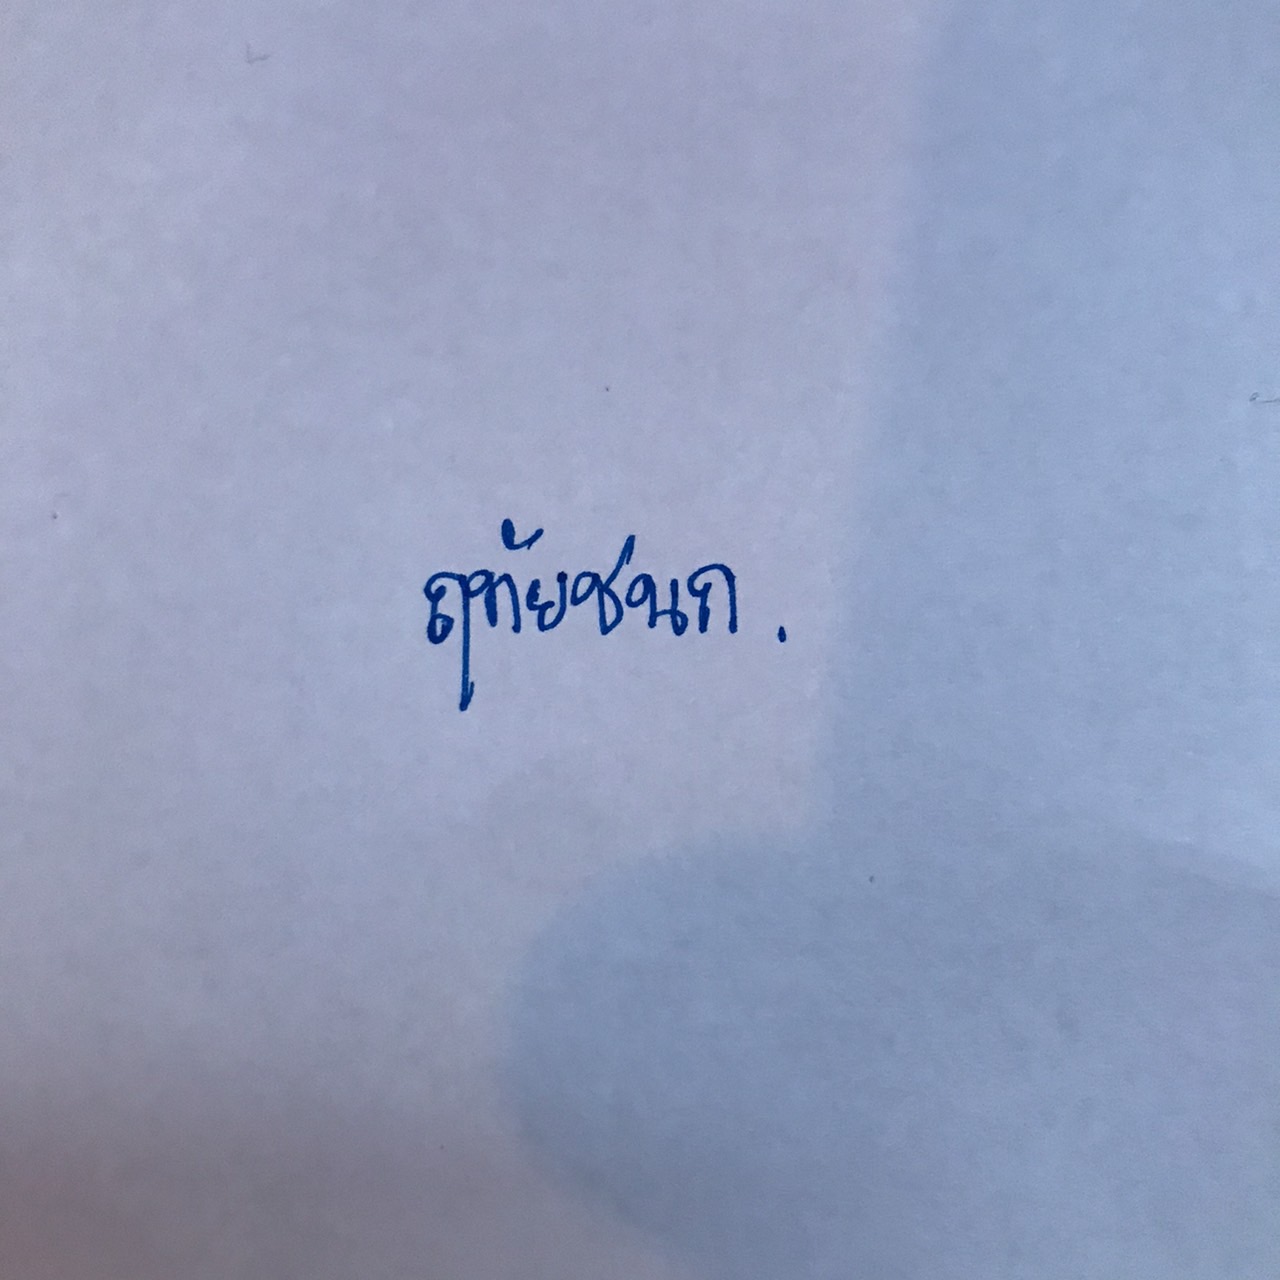 ฤทัยชนก.